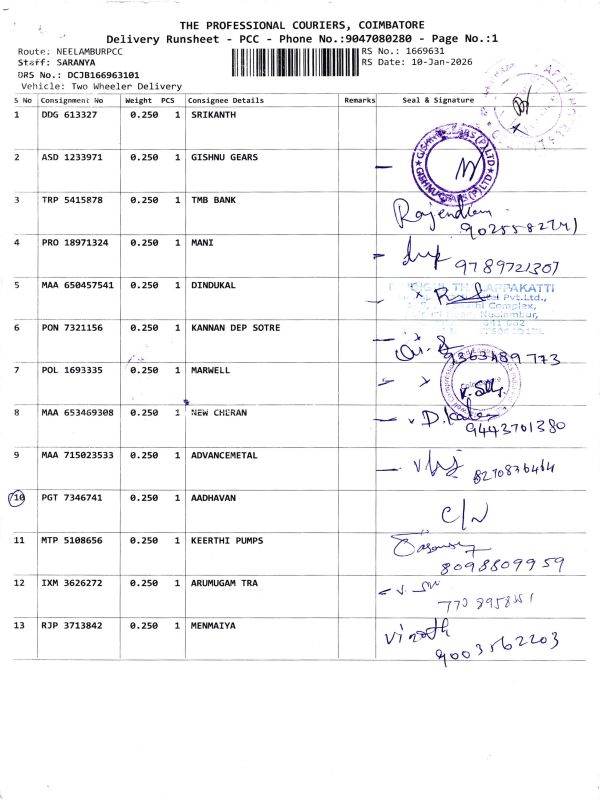 THE PROFESSIONAL COURIERS, COIMBATORE
Delivery Runsheet - PCC - Phone No.:9047080280 - Page No.:1
Route: NEELAMBURPCC
RS No.: 1669631
Staff: SARANYA
RS Date: 10-Jan-2026
DRS No.: DCJB166963101
Vehicle: Two Wheeler Delivery
S No Consignment No Weight PCS Consignee Details Remarks Seal & Signature
1 DDG 613327 0.250 1 SRIKANTH
2 ASD 1233971 0.250 1 GISHNU GEARS
GISHNU GEARS (P) LTD
3 TRP 5415878 0.250 1 TMB BANK
Rajendran
9025582741
4 PRO 18971324 0.250 1 MANI
9789721307
5 MAA 650457541 0.250 1 DINDUKAL
THALAPPAKATTI
Pvt.Ltd.,
Complex,
Neelambur,
641 062
6 PON 7321156 0.250 1 KANNAN DEP SOTRE
9363489773
7 POL 1693335 0.250 1 MARWELL
8 MAA 653469308 0.250 1 NEW CHERAN
9443701380
9 MAA 715023533 0.250 1 ADVANCEMETAL
8270836464
10 PGT 7346741 0.250 1 AADHAVAN
C/N
11 MTP 5108656 0.250 1 KEERTHI PUMPS
8098809959
12 IXM 3626272 0.250 1 ARUMUGAM TRA
13 RJP 3713842 0.250 1 MENMAIYA
Vinoth
9003562203